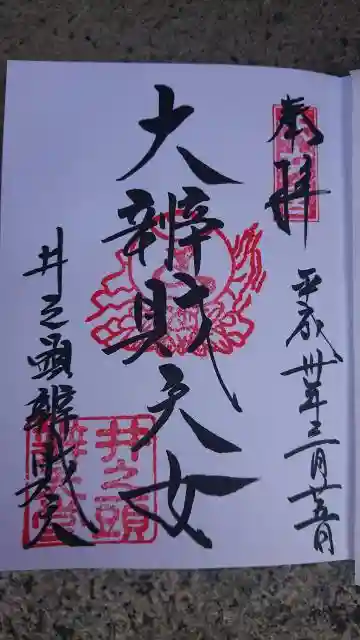 奉拝
平成卅年三月廿五日
大辨財天女
井之頭辨財天
井之頭